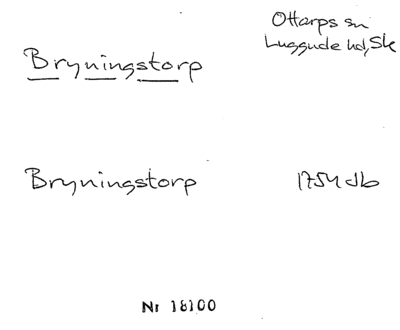 Ottarps sn
Luggude hd, Sk
Bryningstorp
Bryningstorp 1754 db
Nr 18100